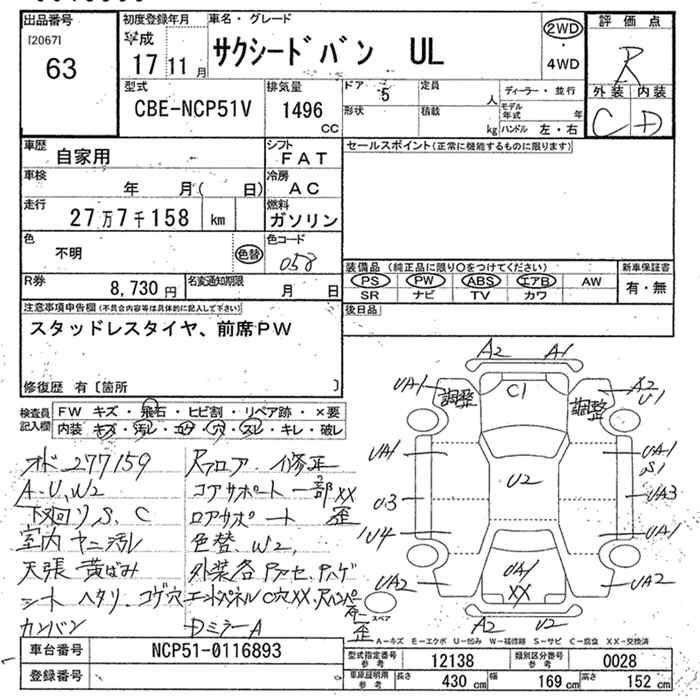 出品番号
[2067]
63
初度登録年月
平成
17 11 月
車名・グレード
サクシードバン UL
2WD
・
4WD
評価点
R
外装 内装
C D
型式
CBE-NCP51V
排気量
1496
CC
ドア 5
形状
定員
人
積載
kg
ディーラー・並行
モデル年式 年
ハンドル 左・右
車歴
自家用
シフト
FAT
車検
年 月( 日)
冷房
AC
走行
27万7千158 km
燃料
ガソリン
色
不明
色替
色コード
058
R券
8,730 円
名変通知期限
月 日
セールスポイント(正常に機能するものに限ります)
装備品 (純正品に限り〇をつけてください)
PS PW ABS エアB AW
SR ナビ TV カワ
新車保証書
有・無
後日品
注意事項申告欄(不具合内容等は具体的に記入して下さい)
スタッドレスタイヤ、前席PW
修復歴 有〔箇所 〕
検査員
記入欄
FW キズ・飛石・ヒビ割・リペア跡・×要
内装・キズ・汚レ・・穴・スレ・キレ・破レ
オド 277159
A.U.W2
下廻りS、C
室内 ヤニ汚レ
天張 黄ばみ
シート ヘタリ、コゲ穴
カンバン
Rフロア、修正
コアサポート一部XX
ロアサポート 歪
色替、W2、
エンドパネルC穴XX、
DミラーA
歪
A2 A1
UA1
調整
C1
調整
A2
U1
UA1
U2
UA1
S1
U3
UA3
U4
UA1
UA2
UA1
XX
UA2
スペア
A2 U2
A-キズ E-エクボ U-凹み W-補修跡 S-サビ C-腐食 XX-交換済
車台番号
NCP51-0116893
登録番号
型式指定番号
参考
12138
類別区分番号
参考
0028
車庫証明用
参考
長さ 430 cm 幅 169 cm 高さ 152 cm